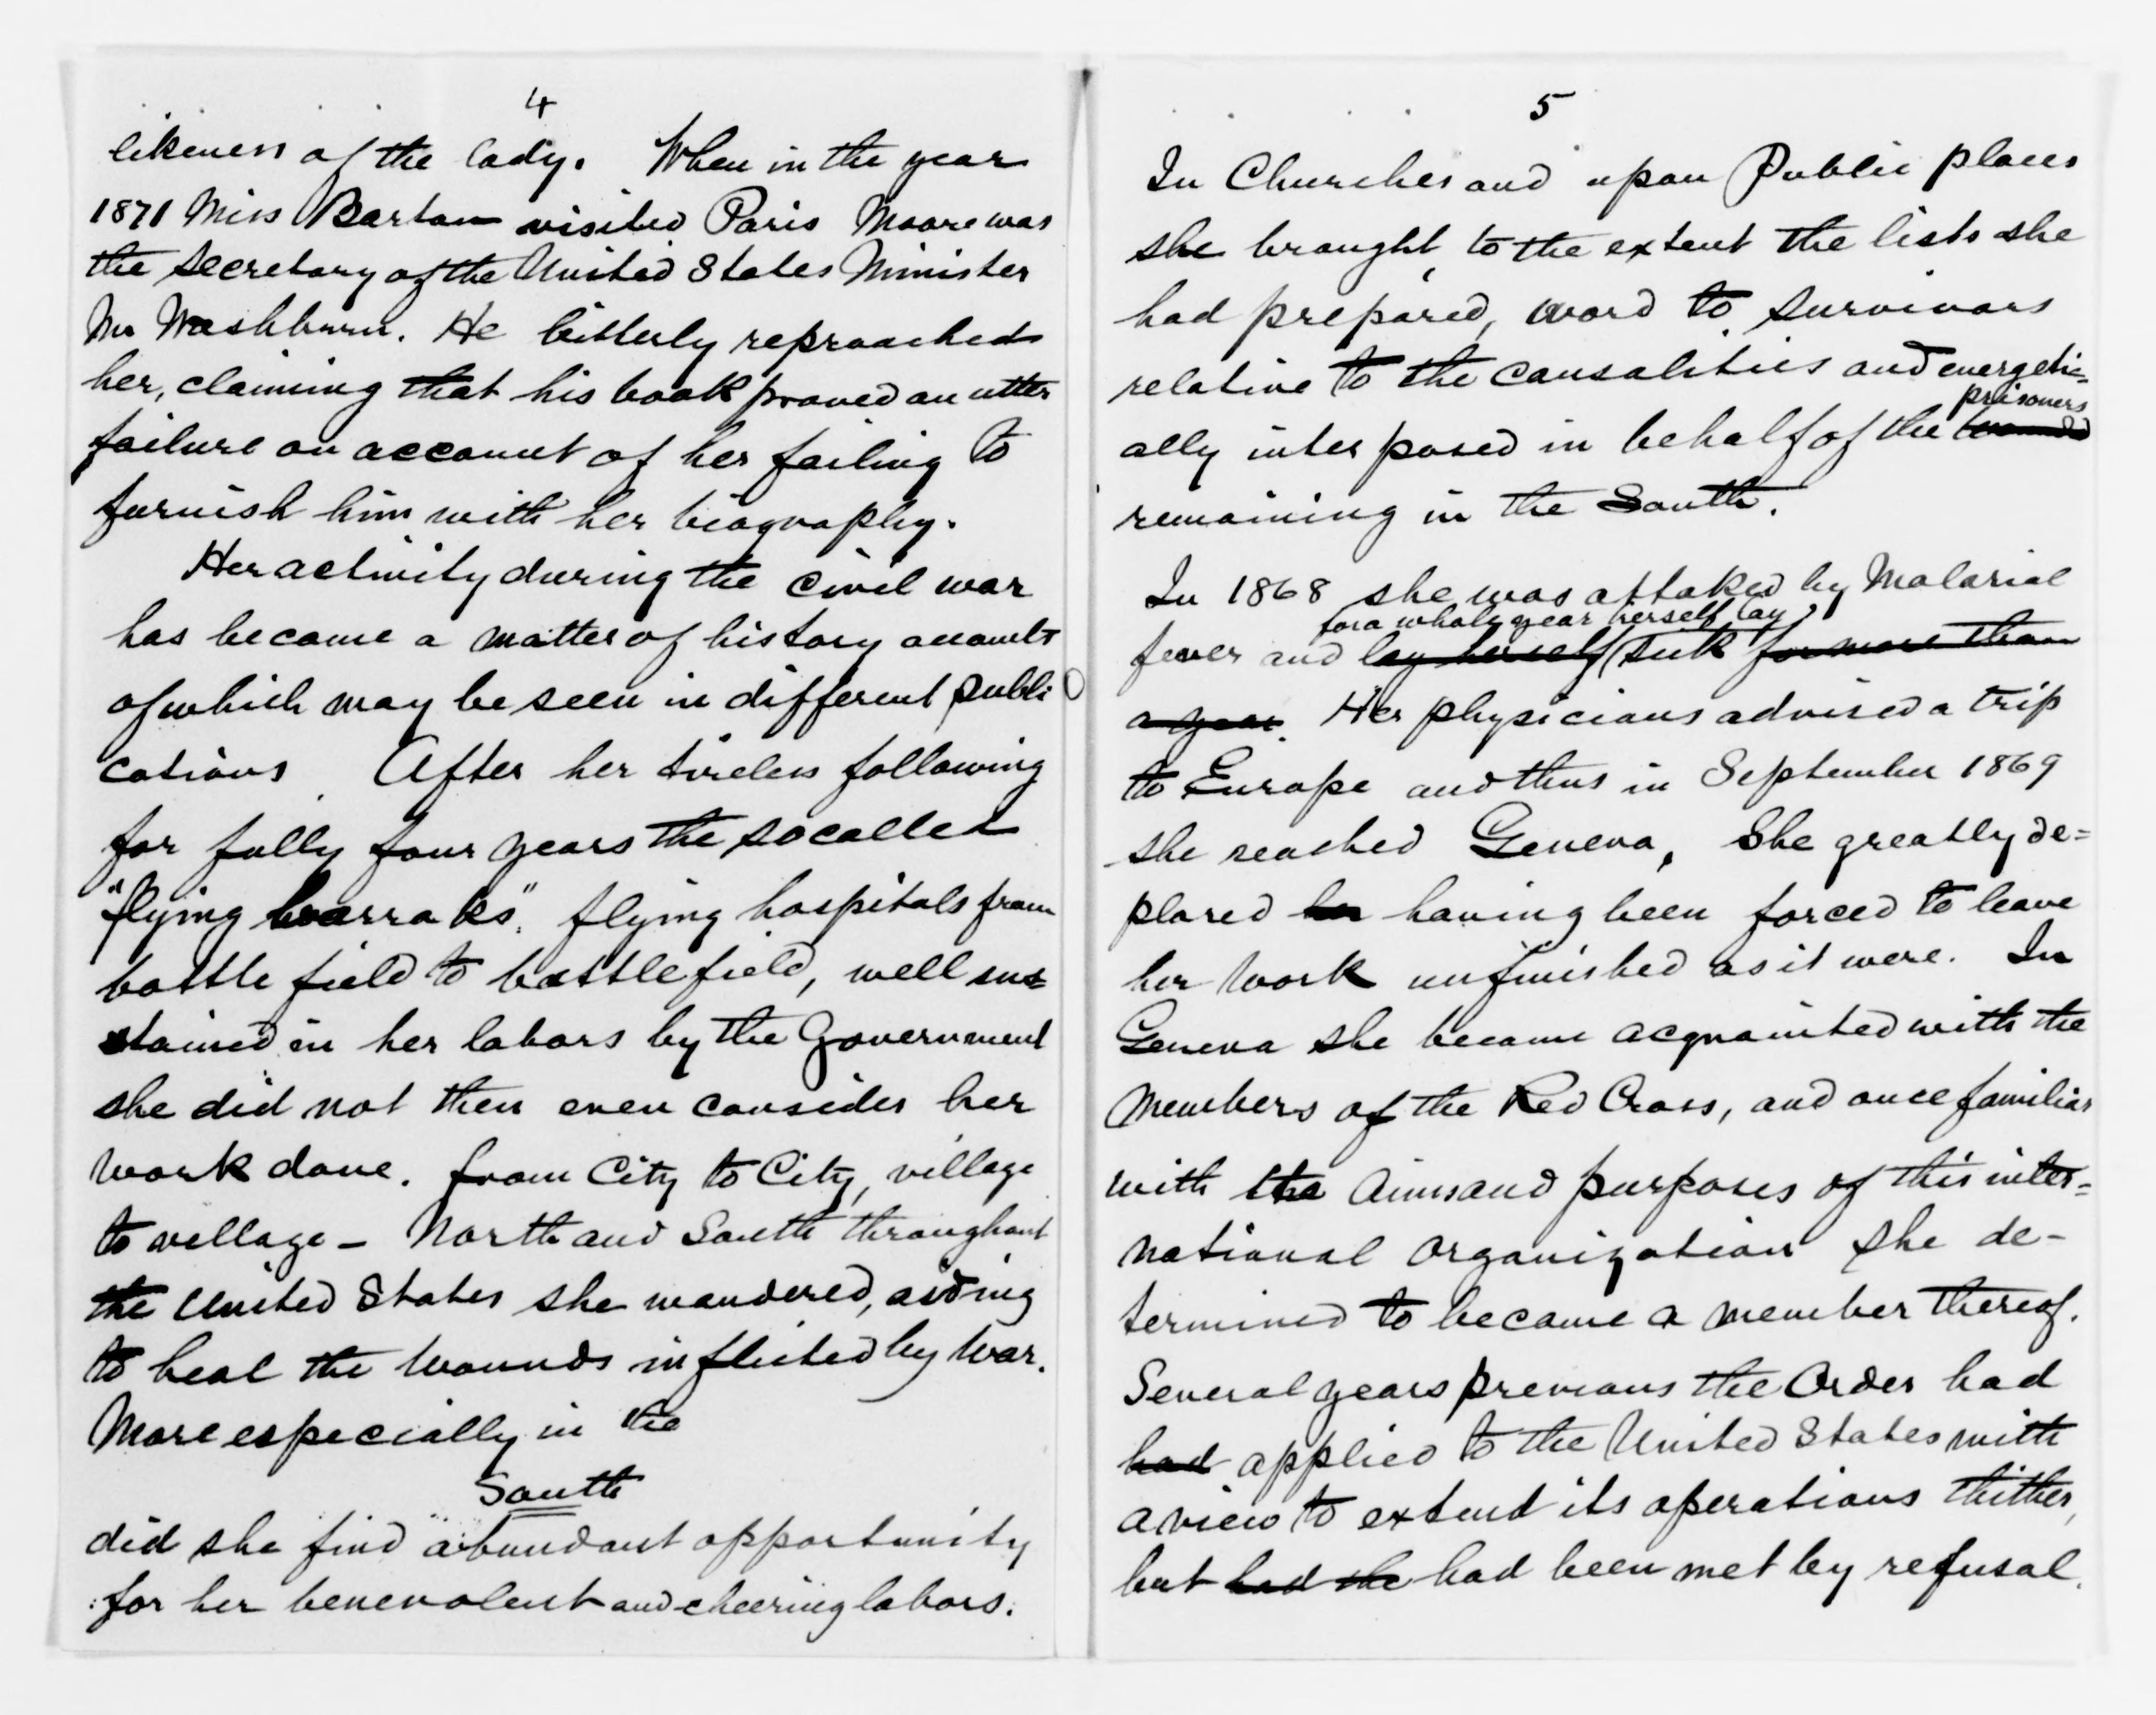 4
likeness of the lady. When in the year
1871 Miss Barton visited Paris Moore was
the secretary of the United States Minister
Mr Washburn. He bitterly reproached
her, claiming that his book proved an utter
failure on account of her failing to
furnish him with her biography.
Her activity during the civil war
has become a matter of history accounts
of which may be seen in different publi
cations After her tireless following
for fully four years the socalled
"flying barraks", flying hospitals from
battle field to battlefield, well sus=
stained in her labors by the Government
she did not then even consider her
work done. from City to City, village
to village - North and South throughout
the United States she wandered, aiding
to heal the wounds inflicted by War.
More especially in the
South
did she find abundant opportunity
for her benevolent and cheering labors.
5
In Churches and upon Public places
she brought, to the extent the lists she
had prepared, word to survivors
relative to the causalities and energetic=
prisoners
ally interposed in behalf of the wounded
remaining in the South.
In 1868 she was attaked by Malarial
for a whole year herself lay
fever and lay herself sick for more than
a year. Her physicians advised a trip
to Europe and thus in September 1869
she reached Geneva, She greatly de=
plored her having been forced to leave
her work unfinished as it were. In
Geneva she became acquainted with the
Members of the Red Cross, and once familiar
with the Aims and purposes of this inter=
national organization she de-
termined to become a member thereof.
Several years previous the Order had
had applied to the United States with
a view to extend its operations thither,
but had she had been met by refusal.